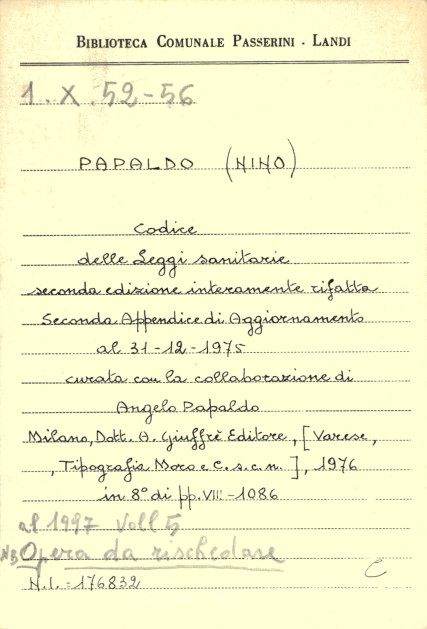 BIBLIOTECA COMUNALE PASSERINI - LANDI
1. X. 52-56
PAPALDO (NINO)
Codice
delle Leggi sanitarie
seconda edizione interamente rifatta
Seconda Appendice di Aggiornamento
al 31-12-1975
curata con la collaborazione di
Angelo Papaldo
Milano, Dott. A. Giuffrè Editore, [Varese,
, Tipografia Moro e C. s. c. n.], 1976
in 8° di pp. VIII-1086
al 1997 Voll 5
NB Opera da rischedare
N.I. = 176832
C